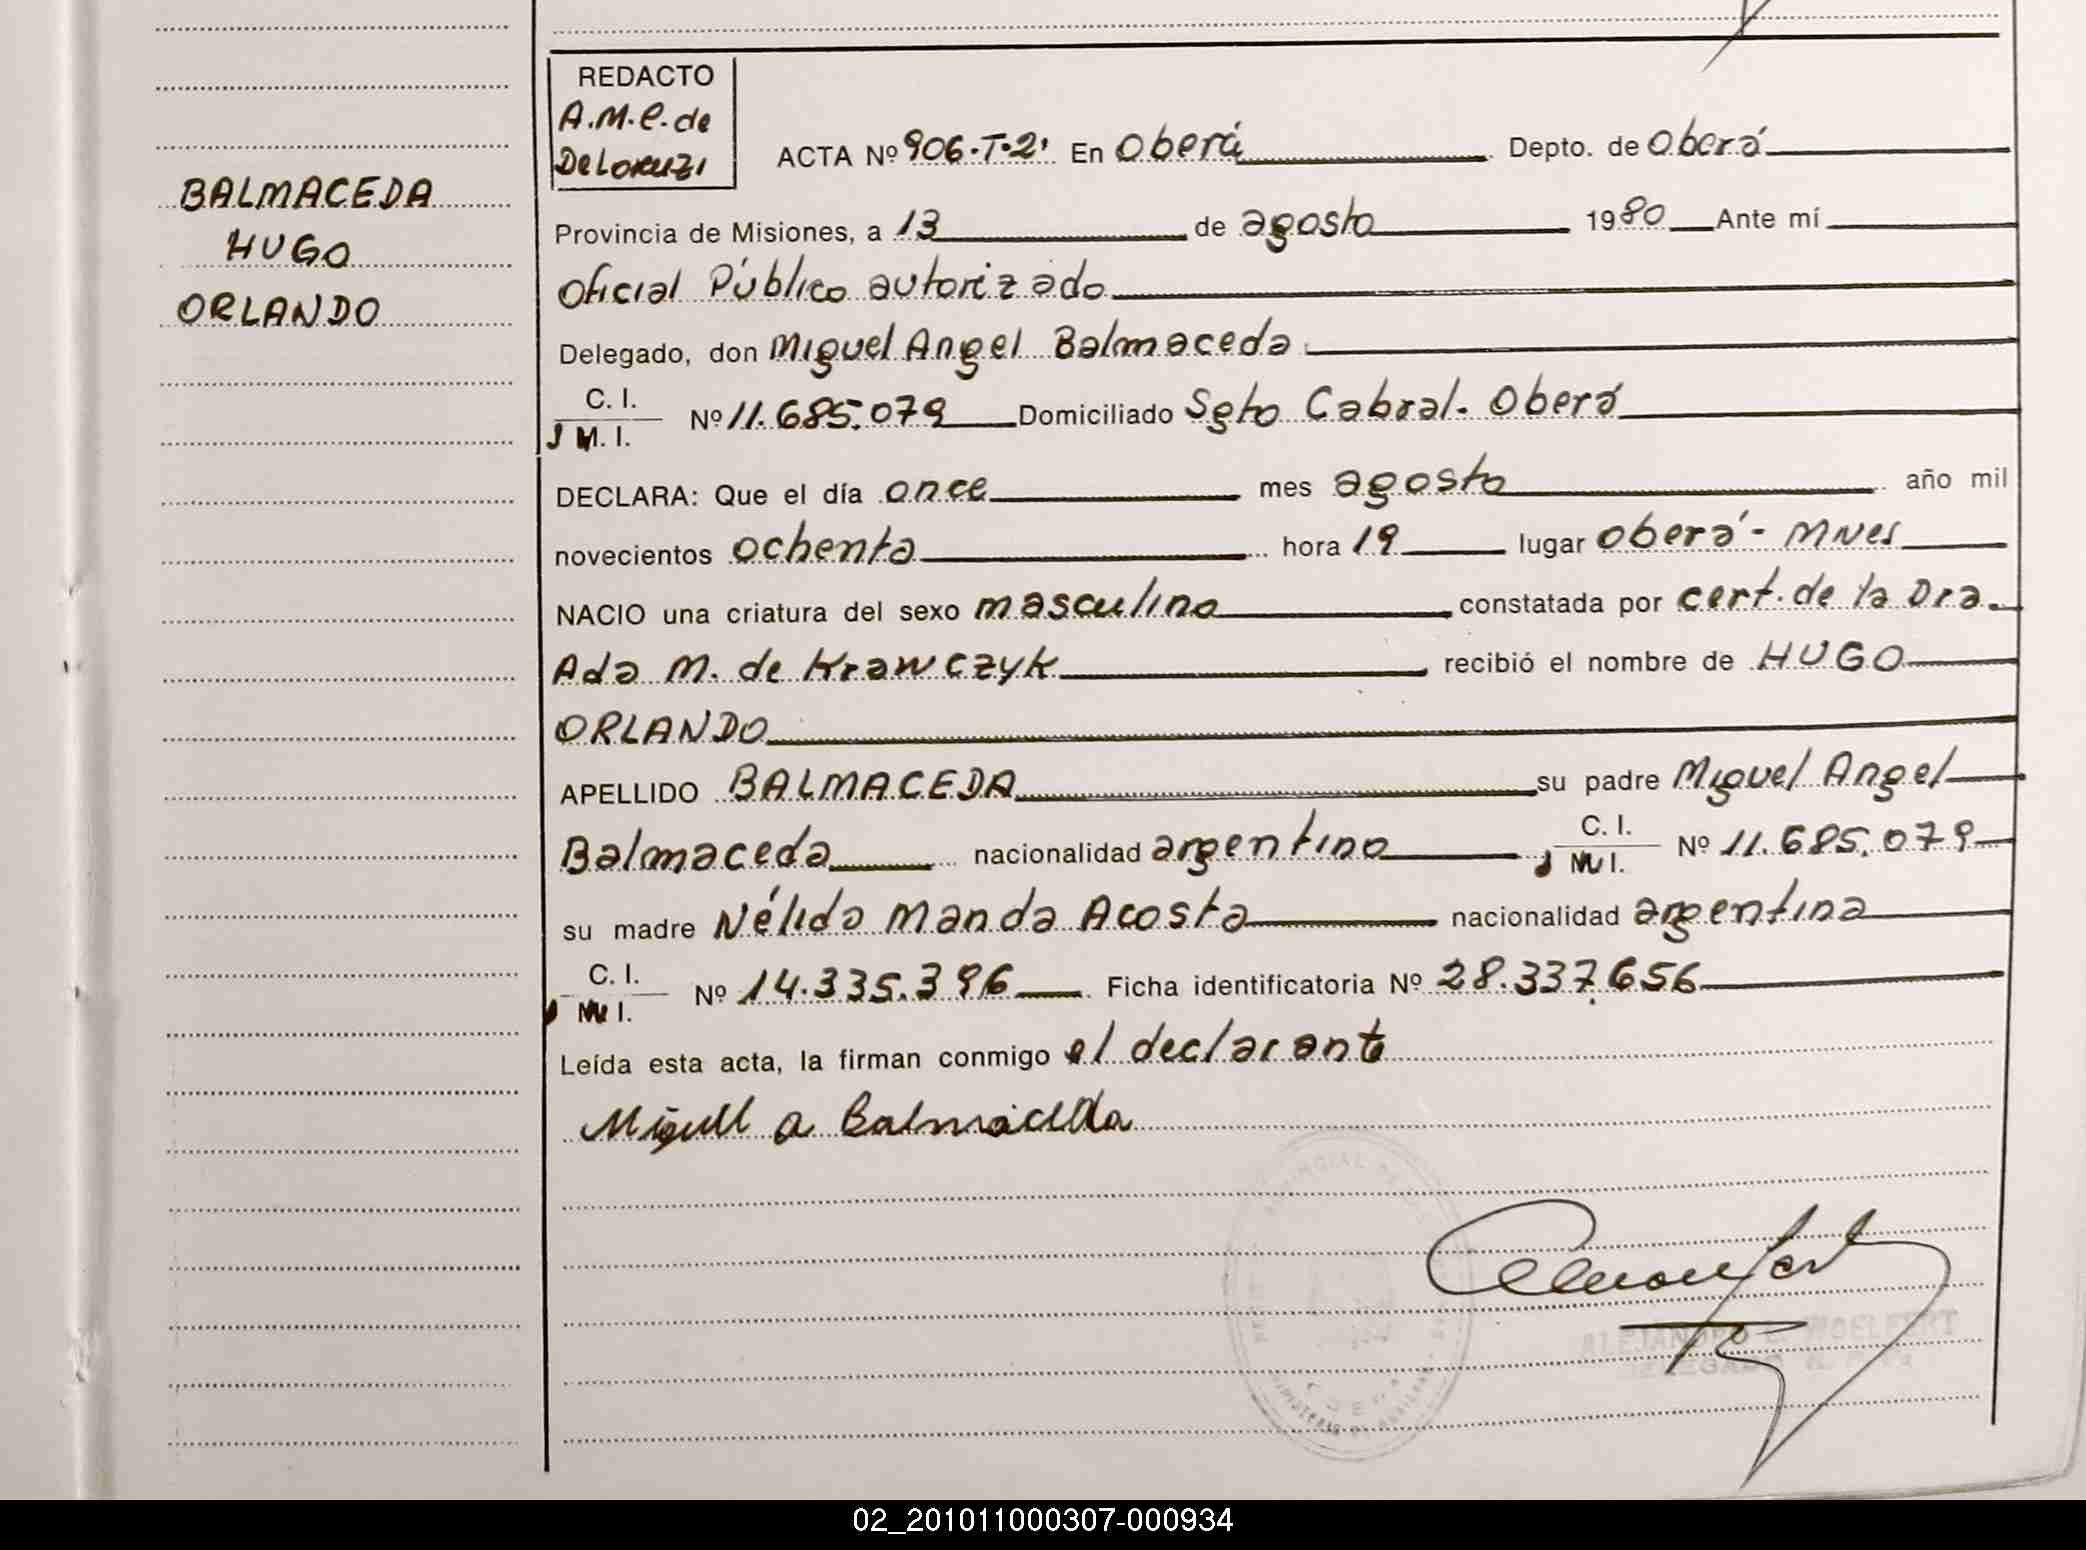 BALMACEDA
HUGO
ORLANDO
REDACTO
A.M.C. de
ACTA Nº 906-T-2' En Oberá Depto. de Oberá
Provincia de Misiones, a 13 de agosto 1980 Ante mí
Oficial Público autorizado
Delegado, don Miguel Angel Balmaceda
C. I.
M. I. Nº 11.685.079 Domiciliado Sgto Cabral - Oberá
DECLARA: Que el día once mes agosto año mil
novecientos ochenta hora 19 lugar Oberá - Mnes
NACIO una criatura del sexo masculino constatada por cert. de la Dra
Ada M. de Krawczyk recibió el nombre de HUGO
ORLANDO
APELLIDO BALMACEDA su padre Miguel Angel
Balmaceda nacionalidad argentino C. I.
M. I. Nº 11.685.079
su madre Nélida Manda Acosta nacionalidad argentina
C. I.
M. I. Nº 14.335.396 Ficha identificatoria Nº 28.337.656
Leída esta acta, la firman conmigo el declarante
Miguel a Balmaceda
ALEJANDRO
DELEGADO
02_201011000307-000934